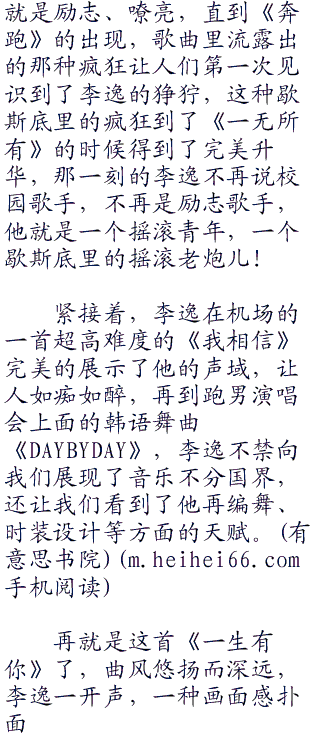 就是励志、嘹亮，直到《奔
跑》的出现，歌曲里流露出
的那种疯狂让人们第一次见
识到了李逸的狰狞，这种歇
斯底里的疯狂到了《一无所
有》的时候得到了完美升
华，那一刻的李逸不再说校
园歌手，不再是励志歌手，
他就是一个摇滚青年，一个
歇斯底里的摇滚老炮儿！
紧接着，李逸在机场的
一首超高难度的《我相信》
完美的展示了他的声域，让
人如痴如醉，再到跑男演唱
会上面的韩语舞曲
《DAYBYDAY》，李逸不禁向
我们展现了音乐不分国界，
还让我们看到了他再编舞、
时装设计等方面的天赋。(有
意思书院)(m.heihei66.com
手机阅读)
再就是这首《一生有
你》了，曲风悠扬而深远，
李逸一开声，一种画面感扑
面